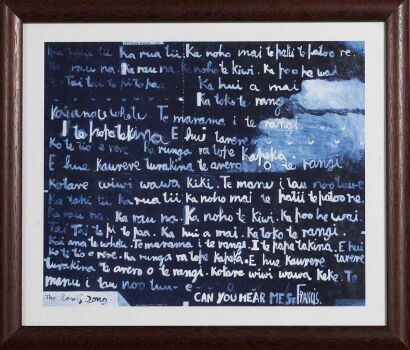 Ka tahi tii. Ka rua tii. Ka noho mai te patii te patoo re.
Ka rau na. Ka rau na. Ka noho te kiwi. Ka poo he wai
Tai Tai te pi te pa. Ka hui a mai
Ka toko te rangi
Kai ana te whetu Te marama i te rangi
I te papa takina E hui tarere
Ko te tio e rere Ka runga ra tope kapeka
E hue Kaurere turakina te arero o te rangi
Kotare wiwi wawa kiki. Te manu i tau
Ka tahi tii. Ka rua tii. Ka noho mai te patii te patoo re.
Ka rau na Ka rau na. Ka noho te kiwi. Ka poo he wai.
Tai Tai te pi te pa. Ka hui a mai. Ka toko te rangi.
Kai ana te whetu. Te marama i te rangi. I te papa takina. E hui
Ko te tio e rere. Ka runga ra tope kapeka. E hue Kaurere tarere
turakina te arero o te rangi. Kotare wiwi wawa keke. Te
manu i tau
The Song. CAN YOU HEAR ME St FRANCIS.